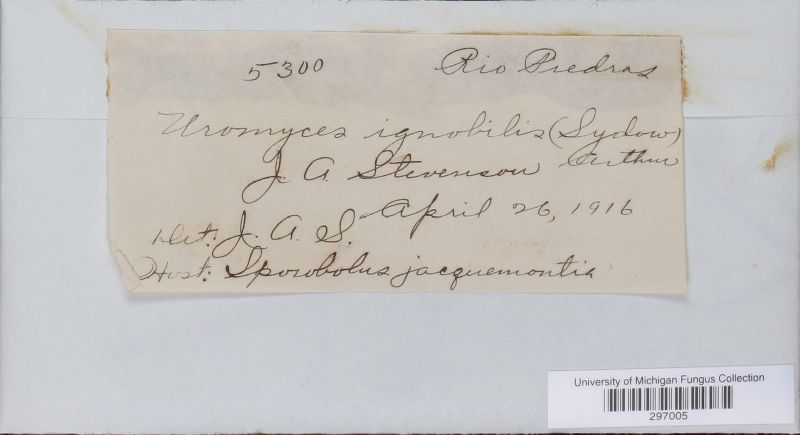 5300 Rio Piedras
Uromyces ignobilis (Sydow)
Arthur
J. A. Stevenson
April 26, 1916
Det: J. A. S.
Host: Sporobolus jacquemontia
University of Michigan Fungus Collection
297005